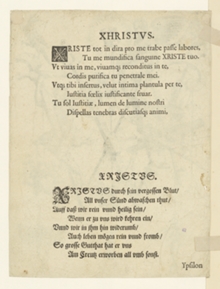 XHRISTVS.
XRISTE tot in dira pro me trabe passe labores,
Tu me mundifica sanguine XRISTE tuo.
Vt viuas in me, viuamq; reconditus in te,
Condis purifica tu penetrale mei.
Vtq; tibi insertus, velut intima plantula per te,
Iustitia fœlix iustificante feuar.
Tu sol Iustitiæ, lumen de lumine nostri
Dispellas tenebras discutiasq; animi.
XRISTVS.
XRISTVS durch sein vergossen Blut/
All vnser Sünd abwaschen thut/
Auff daß wir rein vnnd heilig sein/
Wenn er zu vns wird kehren ein/
Vnnd wir zu jhm hin widerumb/
Auch leben mögen rein vnnd fromb/
So grosse Gutthat hat er vns
Am Creutz erworben all vmb sonst.
Ypsilon